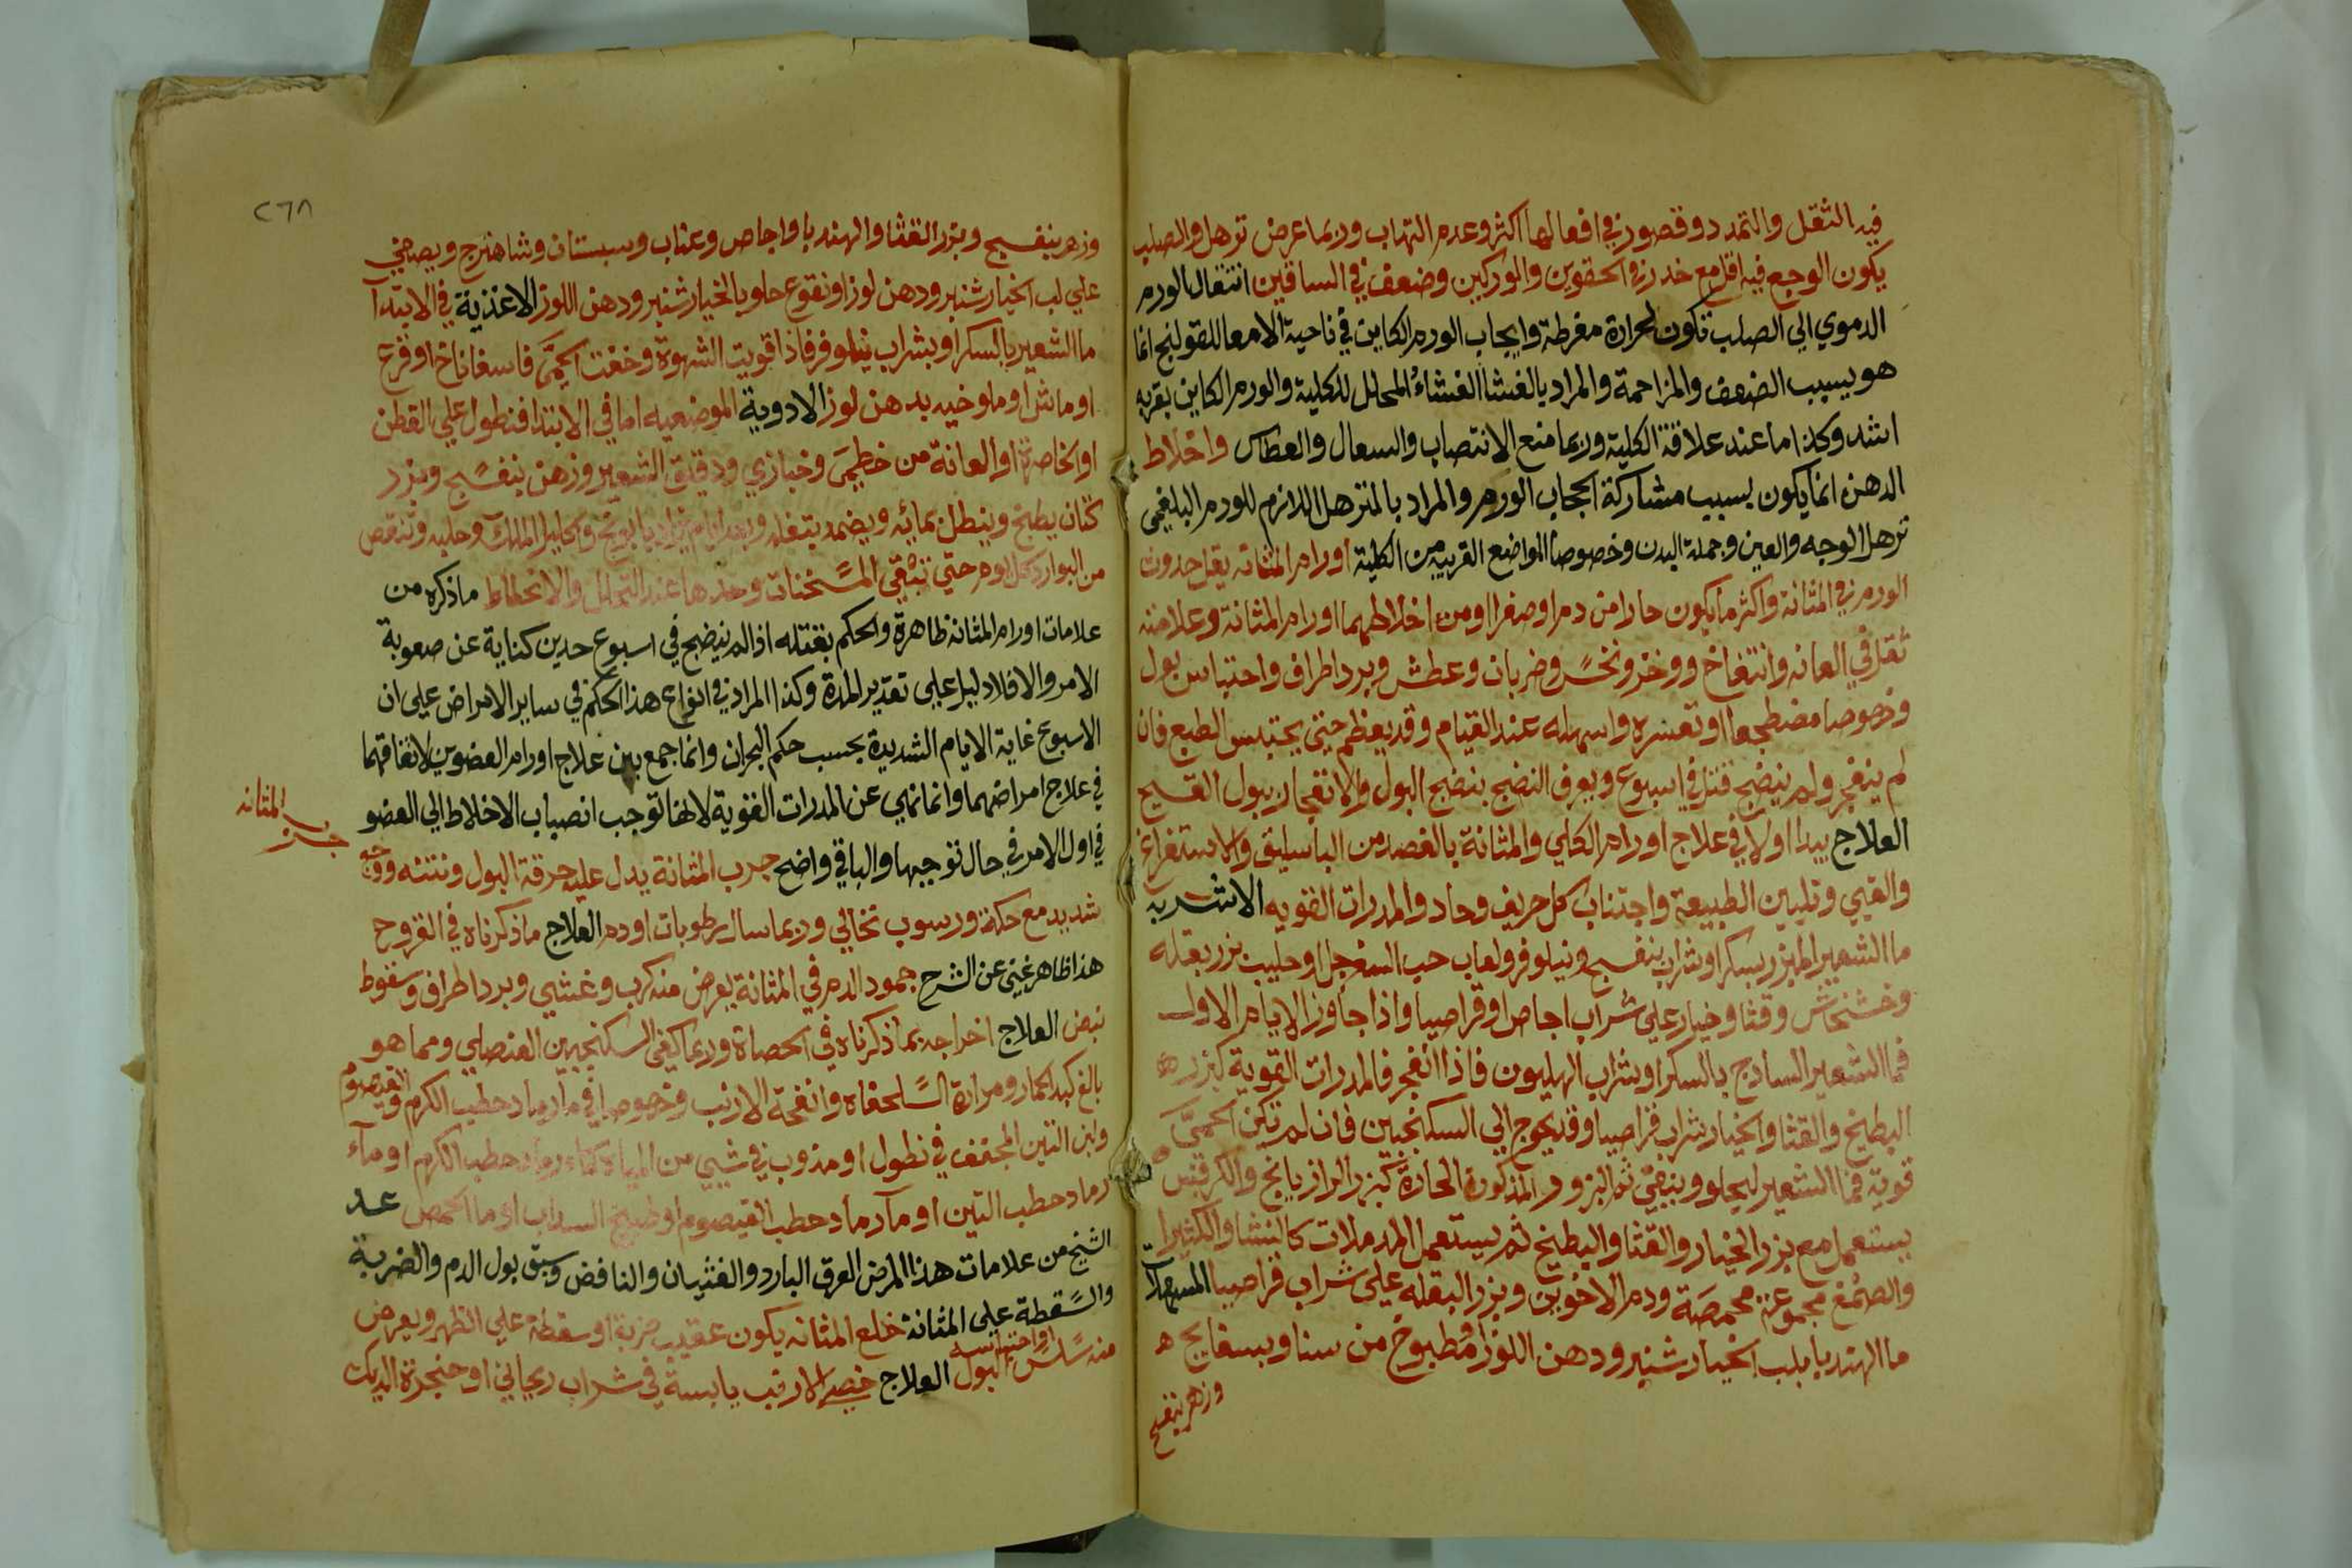 فيه الثقل والتمدد وقصور في افعالها اكثر وعدم التهاب وربما عرض ترهل والصلب
يكون الوجع فيه اقل مع خدر في الحقوين والوركين وضعف في الساقين انتقال الورم
الدموي الي الصلب تكون لحرارة مفرطة وايجاب الورم الكاين في ناحية الامعا للقولنج انما
هو بسبب الضعف والمزاحمة والمراد بالغشا الغشاء المحلل للكلية والورم الكاين بقربه
اشد وكذا ما عند علاقة الكلية وربما منع الانتصاب والسعال والعطاس واخلاط
الدهن انما يكون بسبب مشاركة الحجاب الورم والمراد بالمترهل اللازم للورم البلغمي
ترهل الوجه والعين وجملة البدن وخصوصا المواضع القريبة من الكلية اورام المثانه يقل حدوث
الورم في المثانة واكثر ما يكون حارا من دم او صفرا او من اخلاطهما اورام المثانة وعلامته
ثقل في العانه وانتفاخ ووخز ونخس وضربان وعطش وبرد اطراف واحتباس بول
وخصوصا مضطجعا او تعسره واسهله عند القيام وقد يعظم حتي يحتبس الطبع فان
لم ينفجر ولم ينضج قتل في اسبوع ويعرف النضج بنضج البول والانفجار ببول القيح
العلاج يبدا اولا في علاج اورام الكلي والمثانة بالفصد من الباسليق والاستفراغ
والقيي وتليين الطبيعة واجتناب كل حريف وحاد والمدرات القويه الاشربه
ما الشعير المبزر بسكر او شراب بنفسج ونيلوفر ولعاب حب السفرجل او حليب بزر بقله
وخشخاش وقثا وخيار علي شراب اجاص او قراصيا واذا جاوز الايام الاول
فما الشعير الساذج بالسكر او شراب الهليون فاذا انفجر فالمدرات القوية كبزر
البطيخ والقثا والخيار بشراب قراصيا وقد يحوج الي السكنجبين فان لم تكن الحمي
قوية فما الشعير ليجلو وينقي ثم البزور المذكورة الحارة كبزر الرازيانج والكرفس
يستعمل مع بزر الخيار والقثا والبطيخ ثم يستعمل المدملات كالنشا والكثيرا
والصمغ مجموعة محمصة ودم الاخوين وبزر البقله علي شراب قراصيا المسهلات
ما الهندبا بلب الخيار شنبر ودهن اللوز او مطبوخ من سنا وبسفايج
وزهر بنفسج
٢٦٨
وزهر بنفسج وبزر القثا والهندبا واجاص وعناب وسبستان وشاهترج ويصفي
علي لب الخيار شنبر ودهن لوز او نقوع حلو بالخيار شنبر ودهن اللوز الاغذية في الابتدا
ما الشعير بالسكر او بشراب نيلوفر فاذا قويت الشهوة وخفت الحمي فاسفاناخ او قرع
او ماش او ملوخيه بدهن لوز الادوية الموضعيه اما في الابتدا فنطول علي القطن
او الخاصرة او العانة من خطمي وخبازي ودقيق الشعير وزهر بنفسج وبزر
كتان يطبخ وينطل بمائه ويضمد بتفله وبعد ايام يزاد بابونج واكليل الملك وحلبه وتنقص
من البوارد كل يوم حتي تبقي المسخنات وحدها عند التحلل والانحطاط ما ذكره من
علامات اورام المثانة ظاهرة والحكم بقتله اذا لم ينضج في اسبوع حدين كناية عن صعوبة
الامر والا فلا دليل علي تقدير المدة وكذا المراد في انواع هذا الحكم في ساير الامراض علي ان
الاسبوع غاية الايام الشديدة بحسب حكم البحران وانما جمع بين علاج اورام العضوين لاتفاقهما
في علاج امراضهما وانما نهي عن المدرات القوية لانها توجب انصباب الاخلاط الي العضو
في اول الامر في حال توجيها والباقي واضح جرب المثانة يدل عليه حرقة البول ونتنه ووجع
جرب المثانه
شديد مع حكة ورسوب نخالي وربما سال رطوبات او دم العلاج ما ذكرناه في القروح
هذا ظاهر غني عن الشرح جمود الدم في المثانة يعرض منه كرب وغشي وبرد اطراف وسقوط
نبض العلاج اخراجه بما ذكرناه في الحصاة وربما كفي السكنجبين العنصلي ومما هو
بالغ كبد الحمار ومرارة السلحفاه وانفحة الارنب وخصوصا في ما رماد حطب الكرم والقيصوم
ولبن التين المجفف في نطول او مذوب في شيي من المياه كماء رماد حطب الكرم او ماء
رماد حطب التين او مآ رماد حطب القيصوم او طبيخ السداب او ما الحمص عد
الشيخ من علامات هذا المرض العرق البارد والغثيان والنافض وسبق بول الدم والضربة
والسقطة علي المثانة خلع المثانه يكون عقيب ضربة او سقطة علي الظهر ويعرض
منه سلس البول او احتباسه العلاج خصي الارنب يابسة في شراب ريحاني او حنجرة الديك